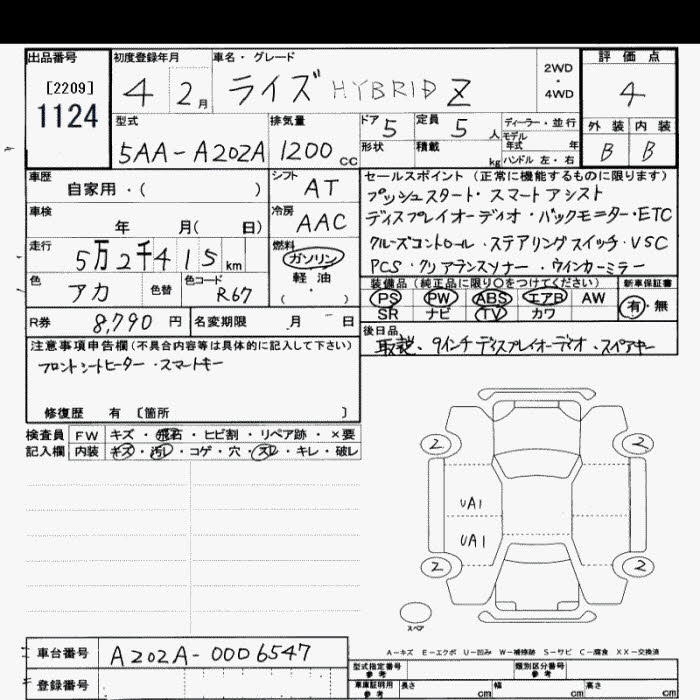 出品番号
[2209]
1124
初度登録年月
4 2月
車名・グレード
ライズ HYBRID Z
2WD
・
4WD
評価点
4
外装 内装
B B
型式
5AA-A202A
排気量
1200 cc
ドア
5
定員
5 人
形状
積載
kg
ディーラー・並行
モデル
年式 年
ハンドル 左・右
車歴
自家用・( )
シフト
AT
車検
年 月( 日)
冷房
AAC
走行
5万2千415km
燃料
ガソリン
軽油
( ・ )
色
アカ
色替
色コード
R67
R券
8,790円
名変期限
月 日
セールスポイント(正常に機能するものに限ります)
プッシュスタート・スマートアシスト
ディスプレイオーディオ・バックモニター・ETC
クルーズコントロール・ステアリングスイッチ・VSC
PCS・クリアランスソナー・ウインカーミラー
装備品(純正品に限り○をつけてください)
PS PW ABS エアB AW
SR ナビ TV カワ
新車保証書
有・無
後日品
取説、9インチディスプレイオーディオ・スペアキー
注意事項申告欄(不具合内容等は具体的に記入して下さい)
フロントシートヒーター・スマートキー
修復歴 有 〔箇所 〕
検査員
記入欄
FW キズ・飛石・ヒビ割・リペア跡・×要
内装 キズ・汚レ・コゲ・穴・スレ・キレ・破レ
2 2
UA1
UA1
2 2
スペア
A-キズ E-エクボ U-凹み W-補修跡 S-サビ C-腐食 XX-交換済
車台番号
A202A-0006547
登録番号
型式指定番号
参考
類別区分番号
参考
車庫証明用
参考
長さ cm
幅 cm
高さ cm